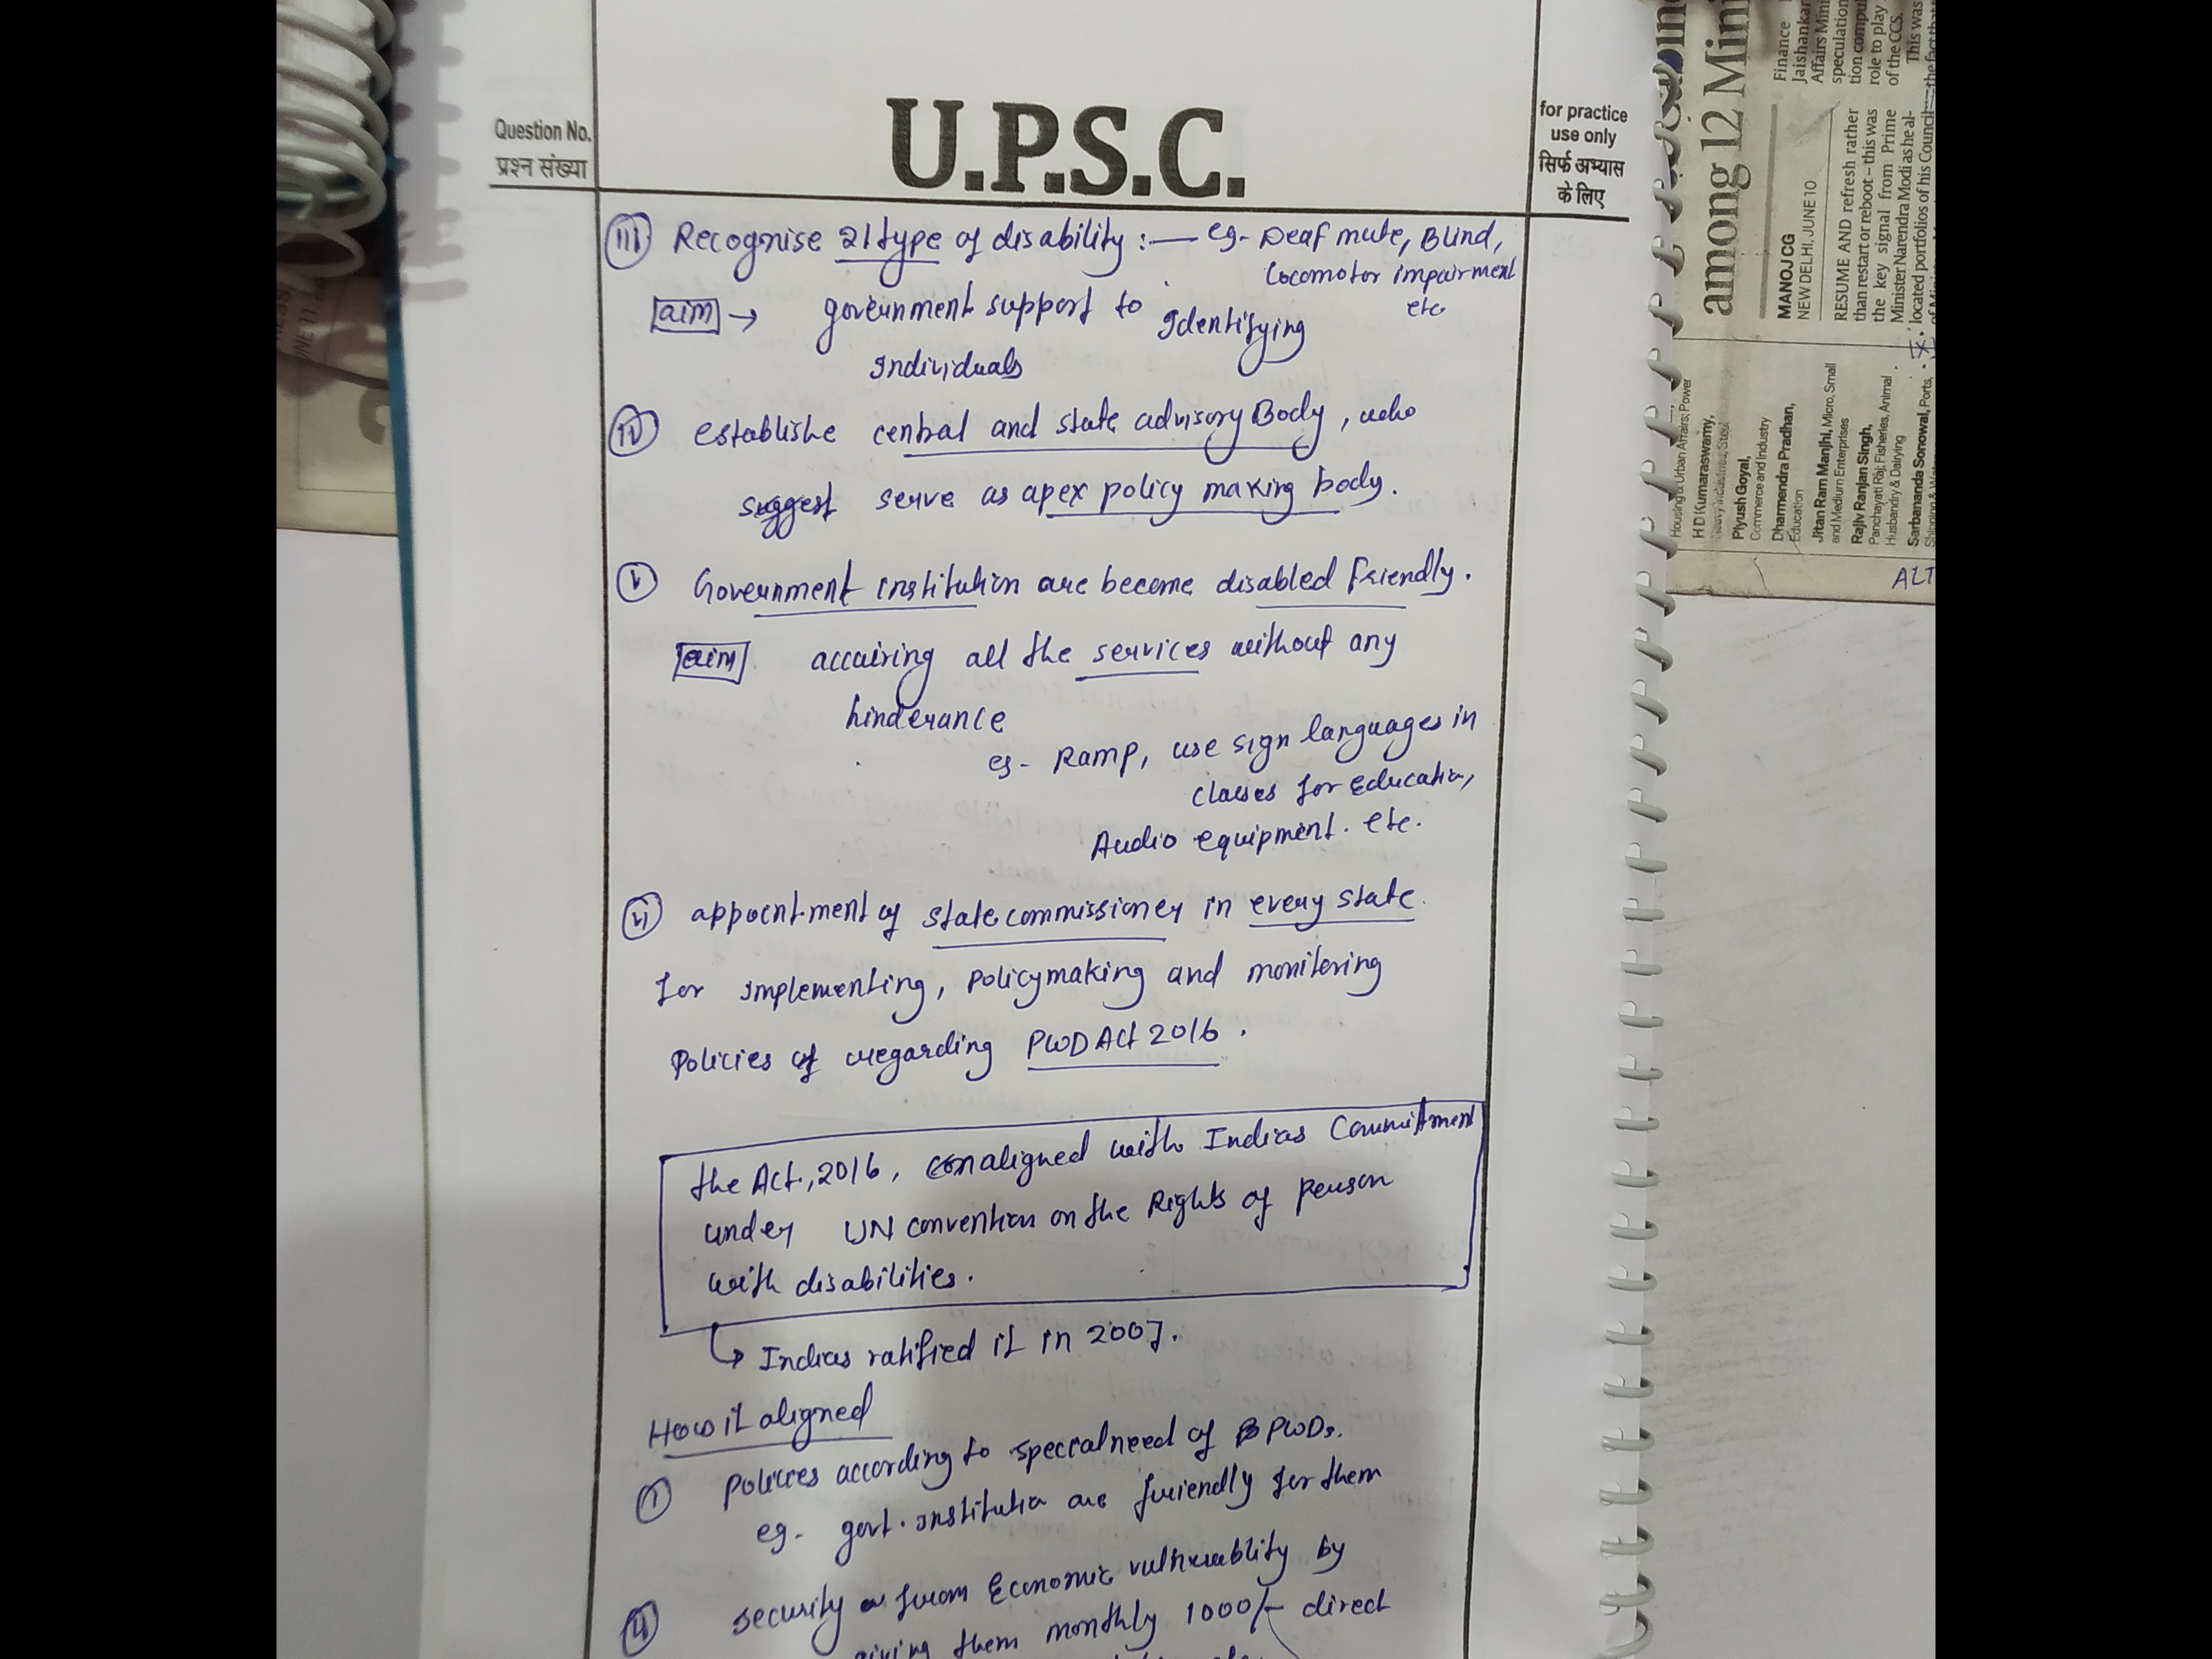 Question No.
प्रश्न संख्या
U.P.S.C.
for practice
use only
सिर्फ अभ्यास
के लिए
(iii) Recognise 21 type of disability :— eg- Deaf mute, Blind,
Locomotor impairment
etc
aim → government support to Identifying
Individuals
(iv) establishe central and state advisory Body, who
suggest serve as apex policy making body.
(v) Government institution are become disabled friendly.
aim accuiring all the services without any
hinderance
eg- Ramp, use sign languages in
classes for education,
Audio equipment. etc.
(vi) appointment of state commissioner in every state.
for implementing, policymaking and monitering
policies of regarding PWD Act 2016.
the Act, 2016, conaligned with Indias Commitment
under UN convention on the Rights of person
with disabilities.
↳ Indias ratified it in 2007.
How it aligned
(i) policies according to special need of PWDs.
eg- govt. institution are friendly for them
(ii) security from Economic vulnerablity by
giving them monthly 1000/- direct
among 12 Mini
MANOJ CG
NEW DELHI, JUNE 10
RESUME AND refresh rather
than restart or reboot – this was
the key signal from Prime
Minister Narendra Modi as he al-
located portfolios of his Council
Finance
Jaishankar
Affairs Mini
speculation
tion compu
role to play
of the CCS.
This was
the fact that
Housing & Urban Affairs; Power
H D Kumaraswamy,
Heavy Industries; Steel
Piyush Goyal,
Commerce and Industry
Dharmendra Pradhan,
Education
Jitan Ram Manjhi, Micro, Small
and Medium Enterprises
Rajiv Ranjan Singh,
Panchayati Raj; Fisheries, Animal
Husbandry & Dairying
Sarbananda Sonowal, Ports,
ALT